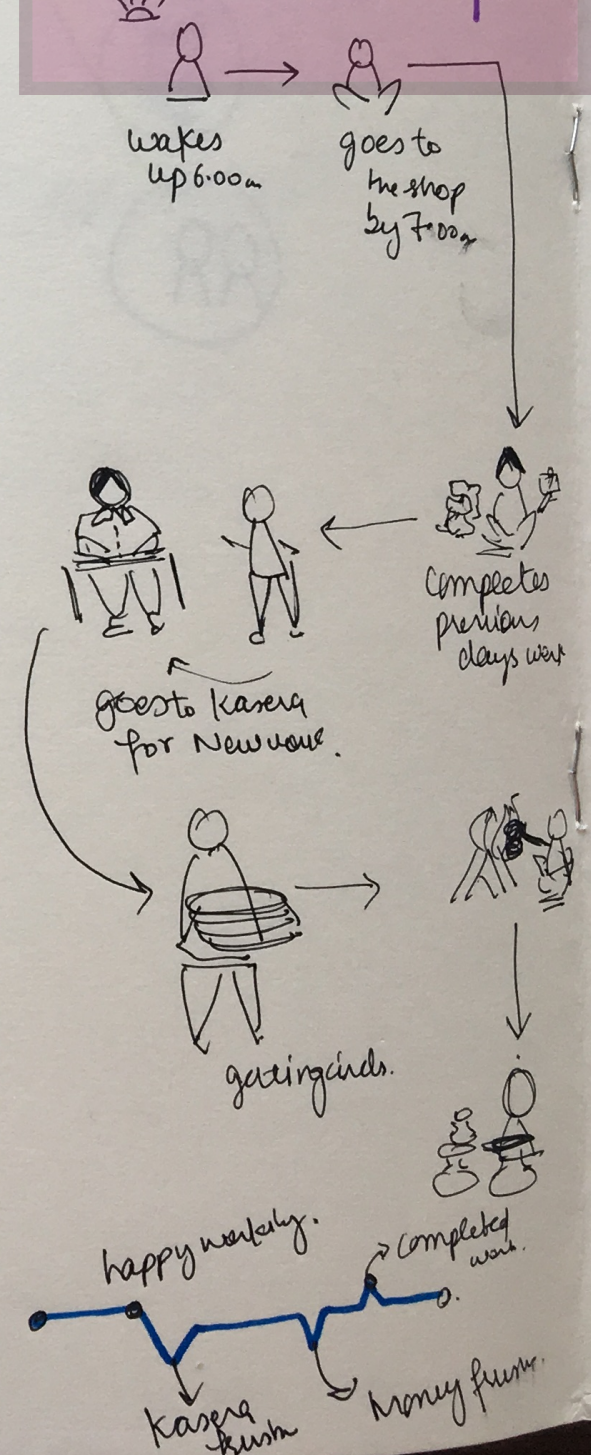 wakes
up 6.00am
goes to
the shop
by 7.00am
Completes
previous
days work
goes to Kasera
for New work.
happy working.
Completed
work.
Kasera
Money